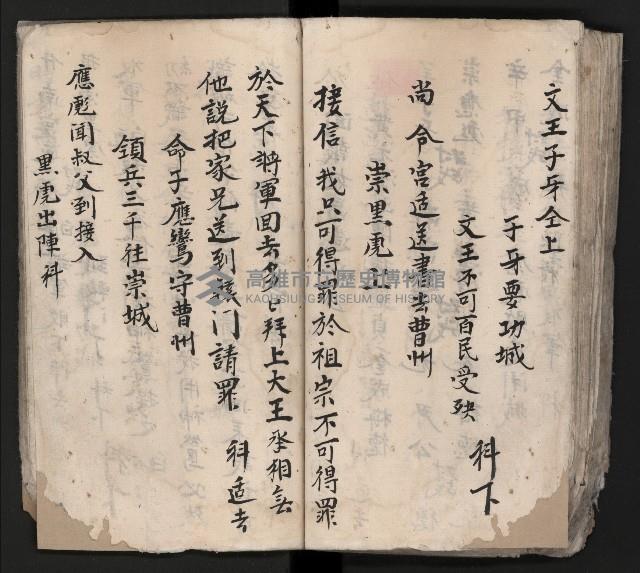 文王子牙仝上
子牙要功城
文王不可百民受殃
科下
尚令宮适送書去曹州
崇黑虎出
接信我只可得罪於祖宗不可得罪
於天下將軍回去多〻拜上大王丞相言
他說把家兄送到轅门請罪
科适去
命子應鸞守曹州
領兵三千往崇城
應彪聞叔父到接入
黑虎出陣科
高雄市立歷史博物館
KAOHSIUNG MUSEUM OF HISTORY